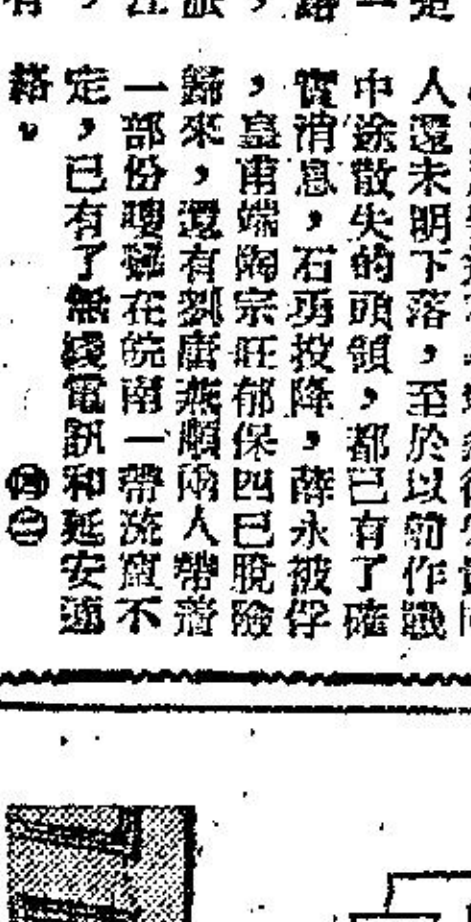 人還未明下落，至於以前作戰
中途散失的頭領，都已有了確
實消息，石勇投降，薛永被俘
，皇甫端陶宗旺郁保四已脫險
歸來，還有劉唐燕順兩人帶着
一部份嘍囉在皖南一帶流竄不
定，已有了無綫電訊和延安連
絡。 ㊃㊁